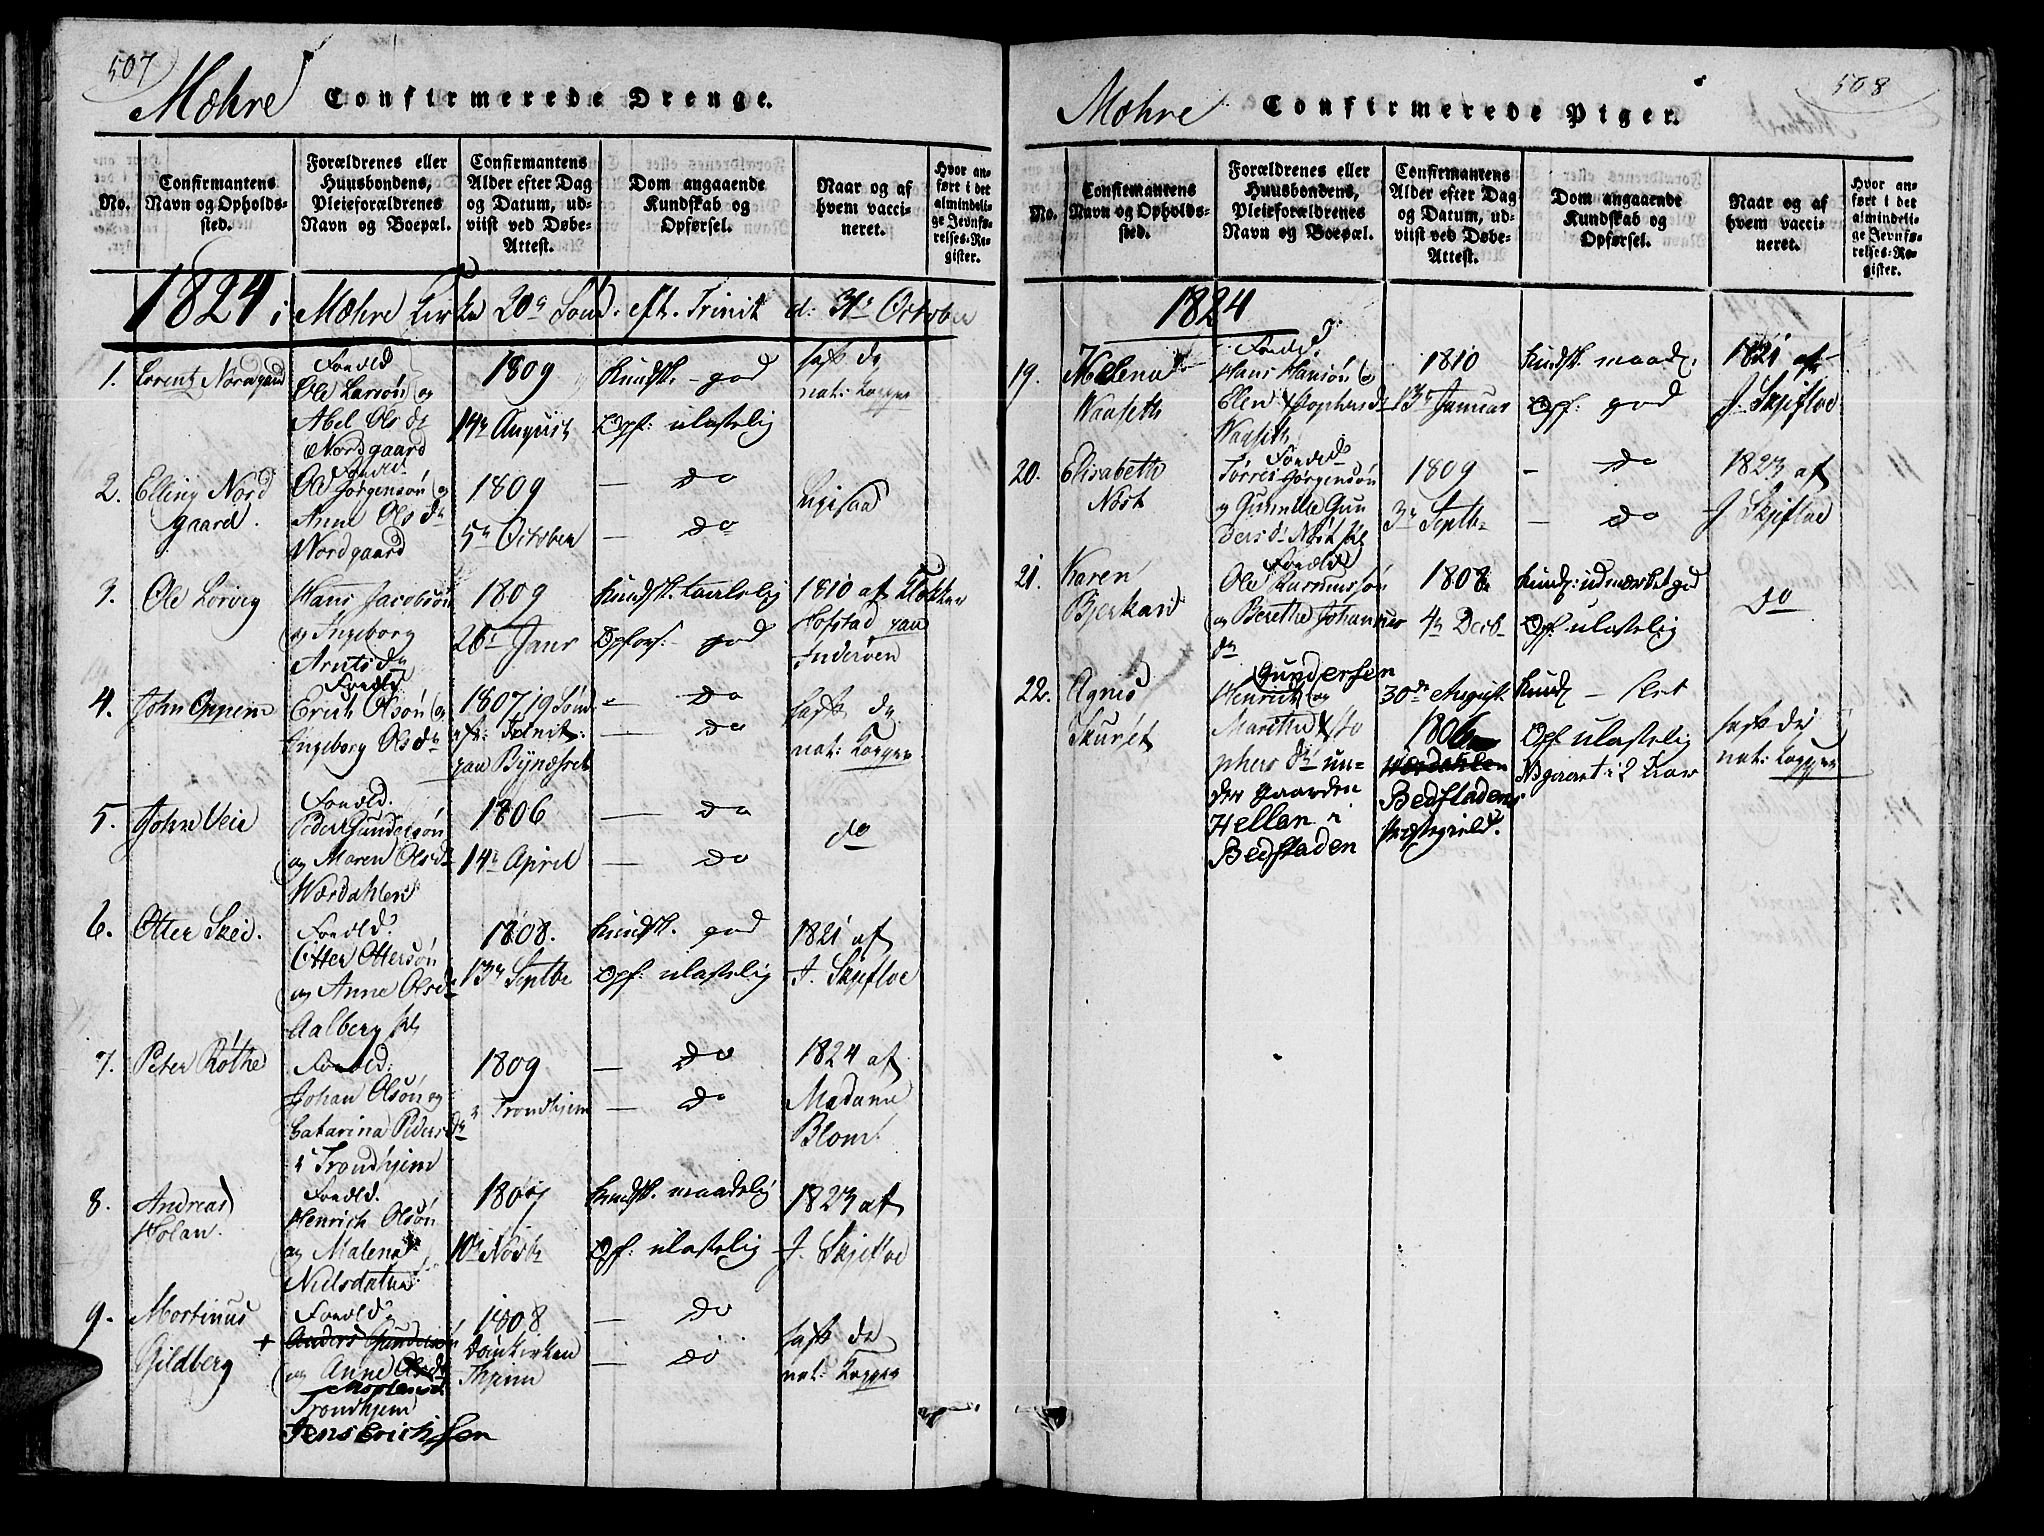 507
Mæhre Confirmerede Drenge.
No.
Confirmantens
Navn og Opholds-
sted.
Forældrenes eller
Huusbondens,
Pleieforældrenes
Navn og Boepæl.
Confirmantens
Alder efter Dag
og Datum, ud-
viist ved Døbe-
Attest.
Dom angaaende
Kundskab og
Opførsel.
Naar og af
hvem vacci-
neret.
Hvor an-
ført i det
almindeli-
ge Jevnfø-
relses-Re-
gister.
1824 i Mæhre Kirke 20de Sønd. eft. Trinit. d: 31te October
1. Lorentz Nordgaard
Foreld
Ole Larsøn og
Abel Ols dr
Nordgaard
1809
14de August
Kundsk. - god
Opf: ulastelig
haft de
nat: Kopper
2. Elling Nord
gaard.
Foreld
Ole Jørgensøn og
Anne Ols dr
Nordgaard
1809
5te October
— do
— do
Ligesaa
3. Ole Lorvig
Hans Jacobsøn
og Ingeborg
Arnts dr
1809
26de Janr
Kundsk. taalelig
Opførs. god
1810 af Klokker
Hofstad paa
Inderøen
4. John Oppem
Foreld
Erich Olsøn og
Ingeborg Ols dr
1807 19 Sønd.
eft: Trinit:
paa Bynæsset
- do
— do
haft de
nat: Kopper
5. John Veie
Foreld.
Peder Gundersøn
og Maren Ols dr
Wærdahlen
1806
14de April
— do
— do
do
6. Otter Skei.
Foreld.
Otter Ottersøn
og Anne Ols dr
Aalberg
1808.
13de Septbr
Kundsk. god
Opf: ulastelig
1821 af
J. Skjefloe
7. Peter Røthe
Foreld.
Johan Olsøn og
Catarina Peders dr
i Trondhjem
1809
i Trondhjem
— do
— do
1824 af
Madame
Blom
8. Andreas
Holan.
Foreld.
Henrich Olsøn
og Malena
Nielsdatter
1807
10de Novbr
Kundsk. maadelig
Opf: ulastelig
1823 af
J. Skjefloe
9. Mortinus
Gildberg
Foreld
+ Anders Gundersøn
og Anne Ols dr
Trondhjem
Jens Erichsen
1808
Domkirken
Thjem
— do
— do
haft de
nat: Kopper
508
Mæhre Confirmerede Piger.
No.
Confirmantens
Navn og Opholds-
sted.
Forældrenes eller
Huusbondens,
Pleieforældrenes
Navn og Boepæl.
Confirmantens
Alder efter Dag
og Datum, ud-
viist ved Døbe-
Attest.
Dom angaaende
Kundskab og
Opførsel.
Naar og af
hvem vacci-
neret.
Hvor an-
ført i det
almindeli-
ge Jevnfø-
relses-Re-
gister.
1824
19. Melena
Waaseth
Foreld.
Hans Hansøn og
Elen
Waaseth
1810
13de Januar
Kundsk. maad.
Opf: god
1821 af
J. Skjefloe
20. Elisabeth
Nøst
Foreld
Torres Jørgensøn
og Gunnille Gun
ders dr Nøst
1809
3de Septbr
- do
— do
1823 af
J. Skjefloe
21. Karen
Bjerkan
Foreld
Ole Rasmussøn
og Berethe Johannes
dr
1808
4de Decb
Kunds: udmærket god
Opf ulastelig
do
22. Agnis
Skurset
Gundersen
Henrich og
Marethe Xsto
phers dr un-
der gaarden
Hellan i
Bedstaden
30de August
1806
Værdahlen
Bedstadens
Præstegield.
Kunds - slet
Opf ulastelig
haft de
nat: Kopper